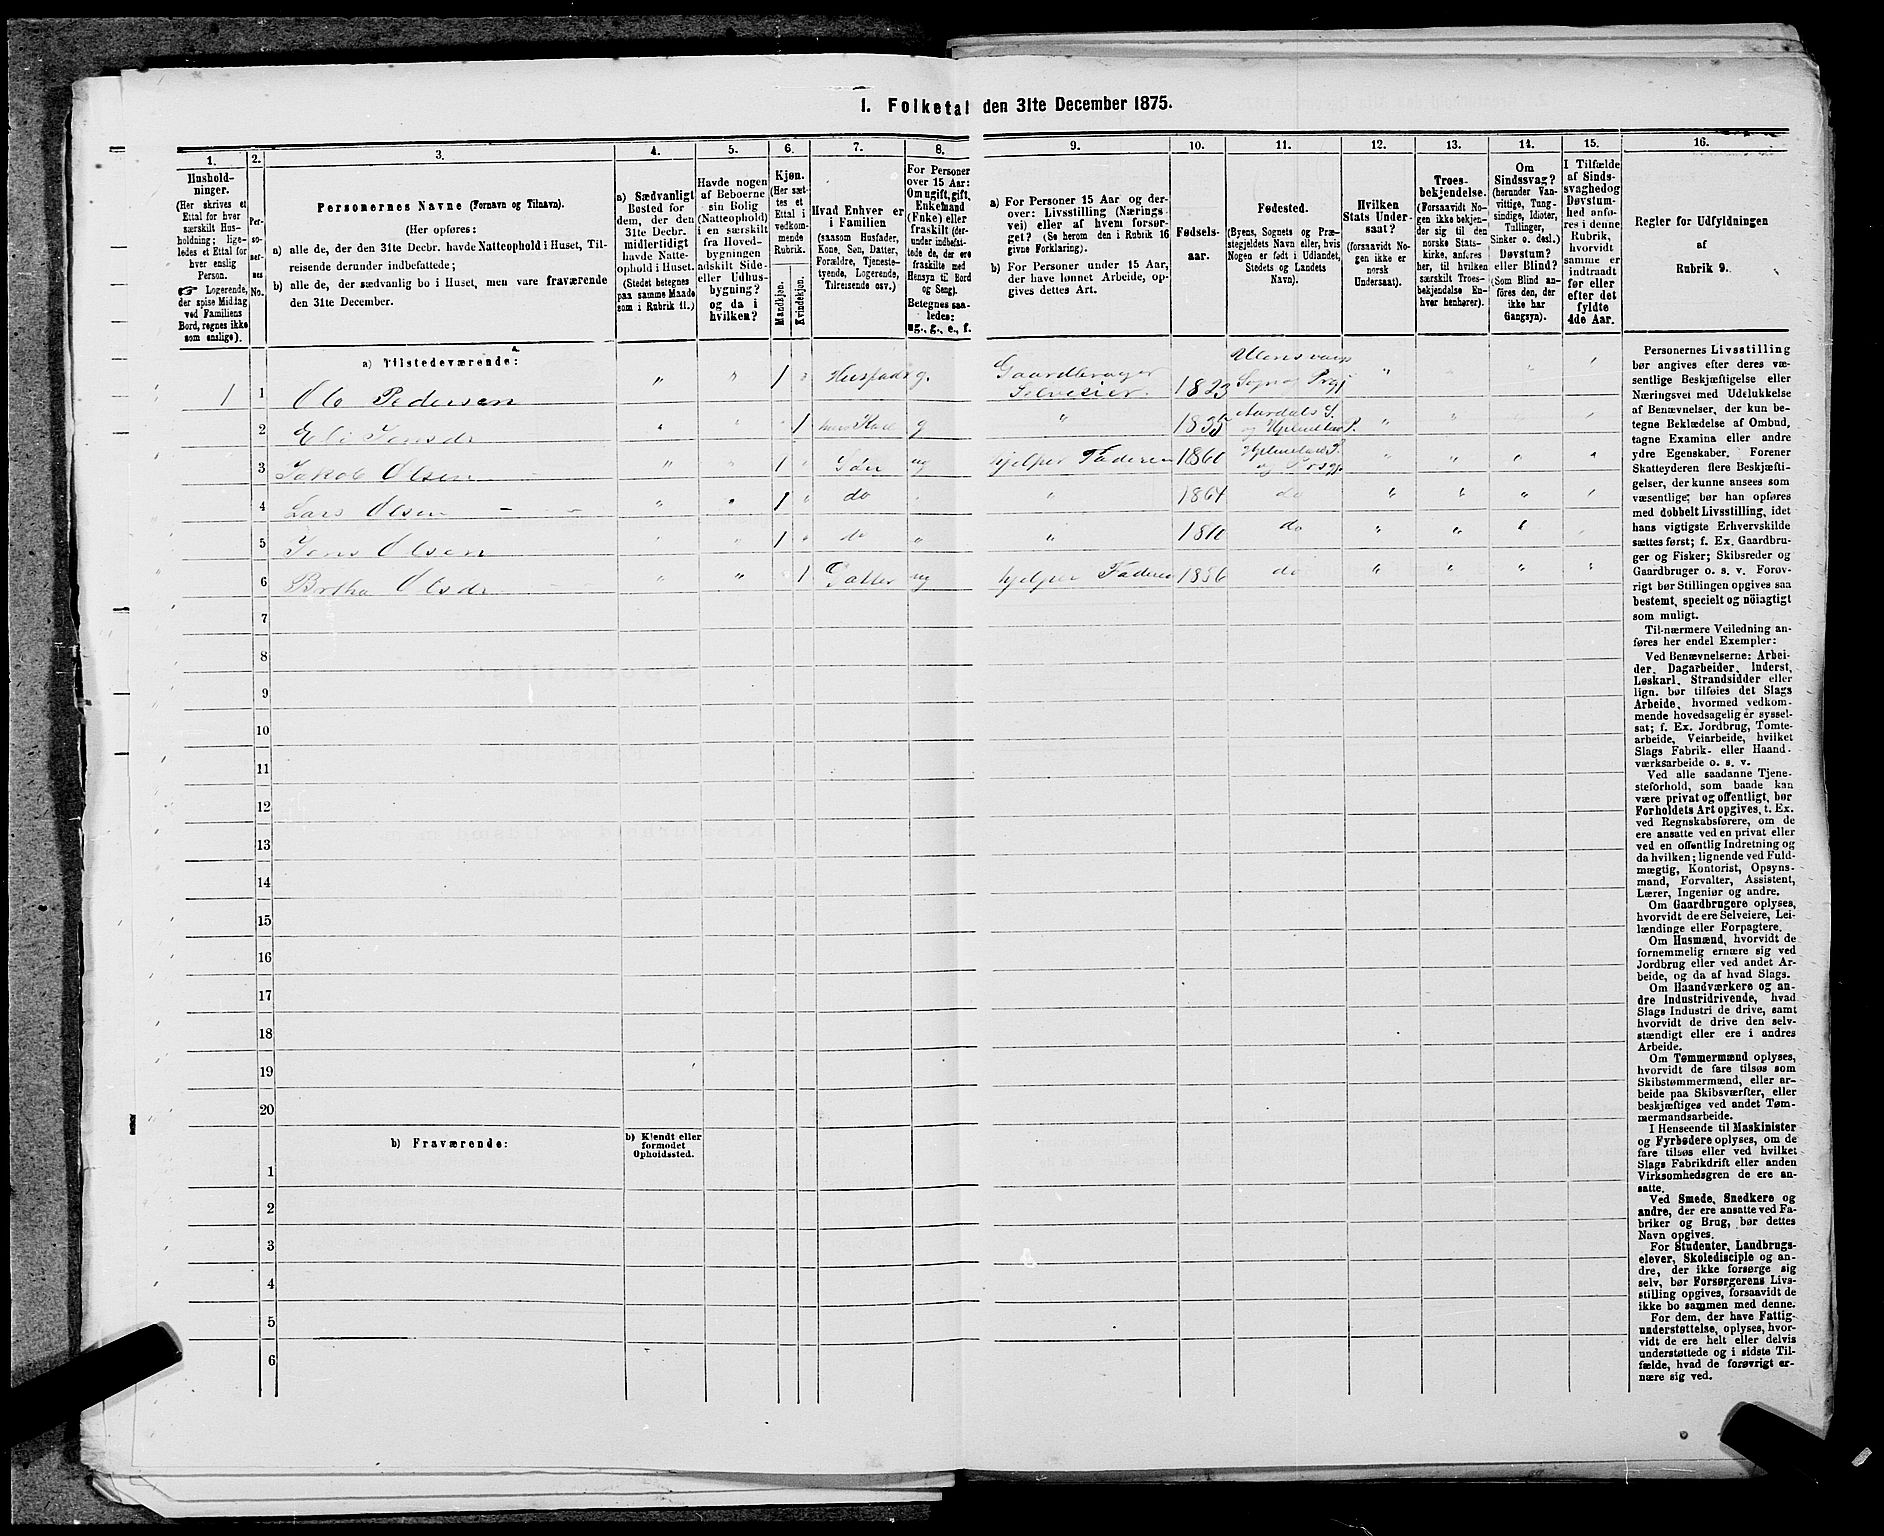 I. Folketal den 31te December 1875.
1.
Husholdninger.
(Her skrives et
Ettal for hver
særskilt Husholdning;
ligeledes et Ettal for
hver enslig
Person.
Logerende,
der spise Middag
ved Familiens
Bord, regnes ikke
som enslige).
2.
Personernes
No.
3.
Personernes Navne (Fornavn og Tilnavn).
(Her opføres:
a) alle de, der den 31te Decbr. havde Natteophold i Huset, Tilreisende derunder indbefattede;
b) alle de, der sædvanlig bo i Huset, men vare fraværende
den 31te December.
4.
a) Sædvanligt
Bosted for
dem, der den
31te Decbr.
midlertidigt
havde Natteophold i Huset.
(Stedet betegnes
paa samme Maade
som i Rubrik 11.)
5.
Havde nogen
af Beboerne
sin Bolig
(Natteophold)
i en særskilt
fra Hovedbygningen
adskilt Side-
eller Udhusbygning?
og da i
hvilken?
6.
Kjøn.
(Her sættes et
Ettal i
vedkommende
Rubrik.
Mandkjøn.
Kvindekjøn.
7.
Hvad Enhver er
i Familien
(saasom Husfader,
Kone, Søn, Datter,
Forældre, Tjenestetyende, Logerende,
Tilreisende osv.)
8.
For Personer
over 15 Aar:
Om ugift, gift,
Enkemand
(Enke) eller
fraskilt (derunder indbefattede de, der ere
fraskilte med
Hensyn til Bord
og Seng).
Betegnes saaledes:
ug., g., e., f.
9.
a) For Personer 15 Aar og derover: Livsstilling (Næringsvei) eller af hvem forsørget? (Se herom den i Rubrik 16
givne Forklaring.)
b) For Personer under 15 Aar,
der have lønnet Arbeide, opgives dettes Art.
10.
Fødselsaar.
11.
Fødested.
(Byens, Sognets og Præstegjeldets Navn eller, hvis
Nogen er født i Udlandet,
Stedets og Landets
Navn).
12.
Hvilken
Stats Undersaat?
(forsaavidt Nogen ikke er
norsk
Undersaat).
13.
Troesbekjendelse.
(Forsaavidt Nogen ikke bekjender sig til den
norske Statskirke, anføres
her, til hvilken
særskilt Troesbekjendelse Enhver henhører).
14.
Om
Sindssvag?
(herunder Vanvittige, Tungsindige, Idioter,
Tullinger,
Sinker o. desl.)
Døvstum?
eller Blind?
(Som Blind anføres den, der
ikke har
Gangsyn).
15.
I Tilfælde
af Sindssvaghed og
Døvstumhed anføres i denne
Rubrik,
hvorvidt
samme er
indtraadt
før eller
efter det
fyldte
4de Aar.
16.
Regler for Udfyldningen
af
Rubrik 9.
a) Tilstedeværende:
1 1 Ole Pedersen " " 1 " Husfader g. Gaardbruger Selveier 1823 Ullensvangs Sogn og Prgj
2 Eli Jensdr " " 1 hans Kone g " Aardals S. og
3 Jakob Olsen " " 1 " Søn ug hjelper Faderen 1860
4 Lars Olsen " " 1 " do " " 1864 do " " " "
5 Jens Olsen " " 1 " do " " do " " "
6 Brtha Olsdr " " " 1 Datter ug hjelper Faderen 1856 do " " " "
7
8
9
10
11
12
13
14
15
16
17
18
19
20
b) Fraværende:
b) Kjendt eller
formodet
Opholdssted.
1
2
3
4
5
6
Personernes Livsstilling
bør angives efter deres væsentlige Beskjæftigelse eller
Næringsvei med Udelukkelse
af Benævnelser, der kun betegne Beklædelse af Ombud,
tagne Examina eller andre
ydre Egenskaber. Forener
Skatteyderen flere Beskjæftigelser, der kunne ansees som
væsentlige; bør han opføres
med dobbelt Livsstilling, idet
hans vigtigste Erhvervskilde
sættes først; f. Ex. Gaardbruger og Fisker; Skibsreder og
Gaardbruger o. s. v. Forøvrigt bør Stillingen opgives saa
bestemt, specielt og nöiagtigt
som muligt.
Til nærmere Veiledning anføres her endel Exempler:
Ved Benævnelserne: Arbeider, Dagarbeider, Inderst,
Løskarl, Strandsidder eller
lign. bør tilføies det Slags
Arbeide, hvormed vedkommende hovedsagelig er sysselsat; f. Ex. Jordbrug, Tomtearbeide, Veiarbeide, hvilket
Slags Fabrik- eller Haandværksarbeide o. s. v.
Ved alle saadanne Tjenesteforhold, som baade kan
være privat og offentligt, bør
Forholdets Art opgives, t. Ex.
ved Regnskabsførere, om de
ere ansatte ved en privat eller
ved en offentlig Indretning og
da hvilken; lignende ved Fuldmægtig, Kontorist, Opsynsmand, Forvalter, Assistent,
Lærer, Ingeniør og andre.
Om Gaardbrugere oplyses,
hvorvidt de ere Selveiere, Leilændinge eller Forpagtere.
Om Husmænd, hvorvidt de
fornemmelig ernære sig ved
Jordbrug eller ved andet Arbeide, og da af hvad Slags.
Om Haandværkere og andre Industridrivende, hvad
Slags Industri de drive, samt
hvorvidt de drive den selvstændigt eller ere i andres
Arbeide.
Om Tømmermænd oplyses,
hvorvidt de fare tilsøs som
Skibstømmermænd, eller arbeide paa Skibsværfter, eller
beskjæftiges ved andet Tømmermandsarbeide.
I Henseende til Maskinister
og Fyrbødere oplyses, om de
fare tilsøs eller ved hvilket
Slags Fabrikdrift eller anden
Virksomhedsgren de ere ansatte.
Ved Smede, Snedkere og
andre, der ere ansatte ved Fabriker og Brug, bør dettes
Navn opgives.
For Studenter, Landbrugselever, Skoledisciple og andre, der ikke forsørge sig
selv, bør Forsørgerens Livsstilling opgives, forsaavidt de
ikke bo sammen med denne.
For dem, der have Fattigunderstøttelse, oplyses, hvorvidt de ere helt eller delvis
understøttede og i sidste Tilfælde, hvad de forøvrigt ernære sig ved.